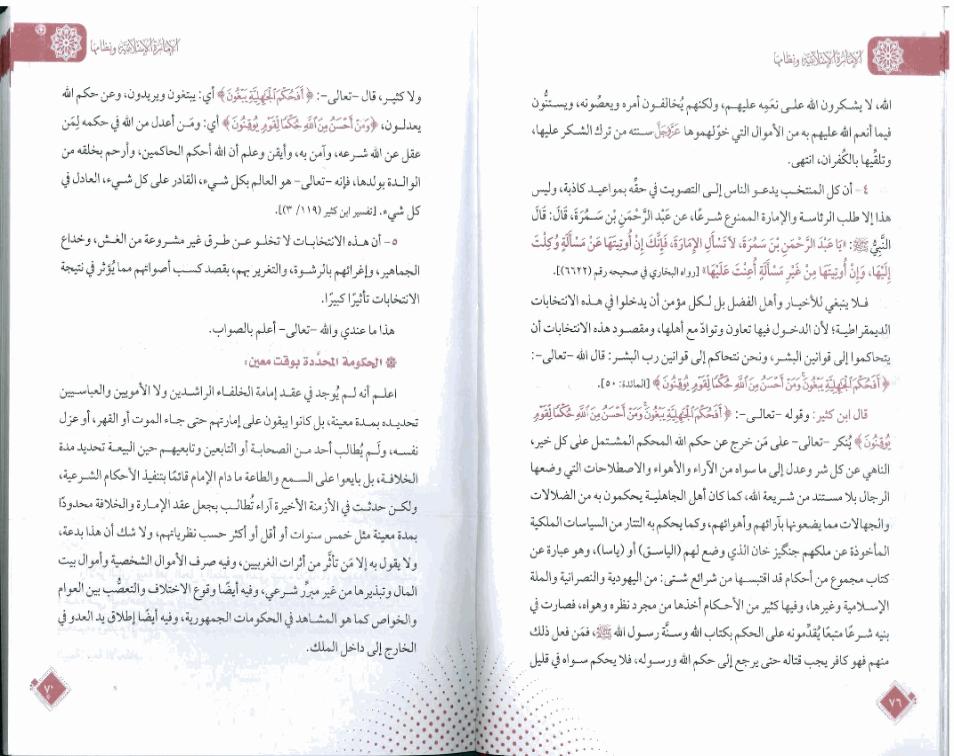 الإمارة الإسلامية ونظامها
الله، لا يشكرون الله على نعَمِه عليهم، ولكنهم يُخالفون أمره ويعصُونه، ويستنُّون
فيما أنعم الله عليهم به من الأموال التي خوّلهموها عَزَّوَجَلَّ سنته من ترك الشكر عليها،
وتلقِّيها بالكُفران، انتهى.
٤- أن كل المنتخب يدعو الناس إلى التصويت في حقِّه بمواعيد كاذبة، وليس
هذا إلا طلب الرئاسة والإمارة الممنوع شرعًا، عن عَبْد الرَّحْمَنِ بْن سَمُرَةَ، قَالَ: قَالَ
النَّبِيُّ ﷺ: «يَا عَبْدَ الرَّحْمَنِ بْنَ سَمُرَةَ، لَا تَسْأَلِ الإِمَارَةَ، فَإِنَّكَ إِنْ أُوتِيتَهَا عَنْ مَسْأَلَةٍ وُكِلْتَ
إِلَيْهَا، وَإِنْ أُوتِيتَهَا مِنْ غَيْرِ مَسْأَلَةٍ أُعِنْتَ عَلَيْهَا» [رواه البخاري في صحيحه رقم (٦٦٢٢)].
فلا ينبغي للأخيار وأهل الفضل بل لكل مؤمن أن يدخلوا في هذه الانتخابات
الديمقراطية؛ لأن الدخول فيها تعاون وتوادّ مع أهلها، ومقصود هذه الانتخابات أن
يتحاكموا إلى قوانين البشر، ونحن نتحاكم إلى قوانين رب البشر: قال الله -تعالى-:
﴿أَفَحُكْمَ الْجَاهِلِيَّةِ يَبْغُونَ وَمَنْ أَحْسَنُ مِنَ اللَّهِ حُكْمًا لِقَوْمٍ يُوقِنُونَ﴾ [المائدة: ٥٠].
قال ابن كثير: وقوله -تعالى-: ﴿أَفَحُكْمَ الْجَاهِلِيَّةِ يَبْغُونَ وَمَنْ أَحْسَنُ مِنَ اللَّهِ حُكْمًا لِقَوْمٍ
يُوقِنُونَ﴾ يُنكر -تعالى- على مَن خرج عن حكم الله المحكم المشتمل على كل خير،
الناهي عن كل شر وعدل إلى ما سواه من الآراء والأهواء والاصطلاحات التي وضعها
الرجال بلا مستند من شريعة الله، كما كان أهل الجاهلية يحكمون به من الضلالات
والجهالات مما يضعونها بآرائهم وأهوائهم، وكما يحكم به التتار من السياسات الملكية
المأخوذة عن ملكهم جنگيز خان الذي وضع لهم (الياسق) أو (ياسا)، وهو عبارة عن
كتاب مجموع من أحكام قد اقتبسها من شرائع شتى: من اليهودية والنصرانية والملة
الإسلامية وغيرها، وفيها كثير من الأحكام أخذها من مجرد نظره وهواه، فصارت في
بنيه شرعًا متبعًا يُقدِّمونه على الحكم بكتاب الله وسنَّة رسول الله ﷺ، فمَن فعل ذلك
منهم فهو كافر يجب قتاله حتى يرجع إلى حكم الله ورسوله، فلا يحكم سواه في قليل
٧٦
الإمارة الإسلامية ونظامها
ولا كثير، قال -تعالى-: ﴿أَفَحُكْمَ الْجَاهِلِيَّةِ يَبْغُونَ﴾ أي: يبتغون ويريدون، وعن حكم الله
يعدلون، ﴿وَمَنْ أَحْسَنُ مِنَ اللَّهِ حُكْمًا لِقَوْمٍ يُوقِنُونَ﴾ أي: ومَن أعدل من الله في حكمه لِمَن
عقل عن الله شرعه، وآمن به، وأيقن وعلم أن الله أحكم الحاكمين، وأرحم بخلقه من
الوالدة بولدها، فإنه -تعالى- هو العالم بكل شيء، القادر على كل شيء، العادل في
كل شيء. [تفسير ابن كثير (١١٩/ ٣)].
٥- أن هذه الانتخابات لا تخلو عن طرق غير مشروعة من الغش، وخداع
الجماهير، وإغرائهم بالرشوة، والتغرير بهم، بقصد كسب أصواتهم مما يُؤثر في نتيجة
الانتخابات تأثيرًا كبيرًا.
هذا ما عندي والله -تعالى- أعلم بالصواب.
الحكومة المحدَّدة بوقت معين:
اعلم أنه لم يُوجد في عقد إمامة الخلفاء الراشدين ولا الأمويين والعباسيين
تحديده بمدة معينة، بل كانوا يبقون على إمارتهم حتى جاء الموت أو القهر، أو عزل
نفسه، ولَم يُطالب أحد من الصحابة أو التابعين وتابعيهم حين البيعة تحديد مدة
الخلافة، بل بايعوا على السمع والطاعة ما دام الإمام قائمًا بتنفيذ الأحكام الشرعية،
ولكن حدثت في الأزمنة الأخيرة آراء تُطالب بجعل عقد الإمارة والخلافة محدودًا
بمدة معينة مثل خمس سنوات أو أقل أو أكثر حسب نظرياتهم، ولا شك أن هذا بدعة،
ولا يقول به إلا مَن تأثَّر من أثرات الغربيين، وفيه صرف الأموال الشخصية وأموال بيت
المال وتبذيرها من غير مبرِّر شرعي، وفيه أيضًا وقوع الاختلاف والتعصُّب بين العوام
والخواص كما هو المشاهد في الحكومات الجمهورية، وفيه أيضًا إطلاق يد العدو في
الخارج إلى داخل الملك.